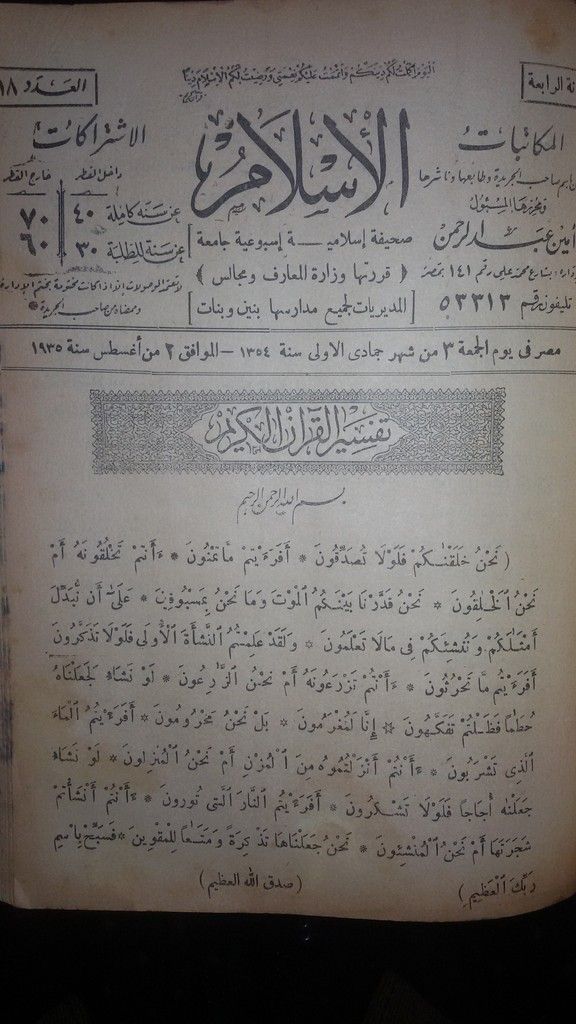 اليوم أكملت لكم دينكم وأتممت عليكم نعمتي ورضيت لكم الإسلام دينا
نة الرابعة
العدد ١٨
الإسلام
المكاتبات
باسم صاحب الجريدة وطابعها وناشرها
ومحررها المسئول
أمين عبد الرحمن
بشارع محمد على رقم ١٤١ بمصر
تليفون رقم ٥٣٣١٣
صحيفة إسلاميـــة إسبوعية جامعة
( قررتها وزارة المعارف ومجالس )
المديريات لجميع مدارسها بنين وبنات
الاشتراكات
داخل القطر
خارج القطر
عن سنة كاملة ٤٠ ٧٠
عن سنة للطلبة ٣٠ ٦٠
لا تعتمد الوصولات إلا إذا كانت مختومة بختم الإدارة
وممضاة من صاحب الجريدة
مصر فى يوم الجمعة ٣ من شهر جمادى الاولى سنة ١٣٥٤ – الموافق ٢ من أغسطس سنة ١٩٣٥
تفسير القرآن الكريم
بسم الله الرحمن الرحيم
( نَحْنُ خَلَقْنَـٰكُمْ فَلَوْلَا تُصَدِّقُونَ * أَفَرَءَيْتُم مَّا تُمْنُونَ * ءَأَنتُمْ تَخْلُقُونَهُ أَمْ
نَحْنُ ٱلْخَـٰلِقُونَ * نَحْنُ قَدَّرْنَا بَيْنَكُمُ ٱلْمَوْتَ وَمَا نَحْنُ بِمَسْبُوقِينَ * عَلَىٰ أَن نُّبَدِّلَ
أَمْثَـٰلَكُمْ وَنُنشِئَكُمْ فِى مَالَا تَعْلَمُونَ * وَلَقَدْ عَلِمْتُمُ النَّشْأَةَ الْأُولَى فَلَوْلَا تَذَكَّرُونَ
أَفَرَءَيْتُم مَّا تَحْرُثُونَ * ءَأَنتُمْ تَزْرَعُونَهُ أَمْ نَحْنُ الزَّٰرِعُونَ * لَوْ نَشَاءُ لَجَعَلْنَاهُ
حُطَامًا فَظَلْتُمْ تَفَكَّهُونَ * إِنَّا لَمُغْرَمُونَ * بَلْ نَحْنُ مَحْرُومُونَ * أَفَرَءَيْتُمُ الْمَاءَ
الَّذِى تَشْرَبُونَ * ءَأَنتُمْ أَنزَلْتُمُوهُ مِنَ ٱلْمُزْنِ أَمْ نَحْنُ الْمُنزِلُونَ * لَوْ نَشَاءُ
جَعَلْنَهُ أُجَاجًا فَلَوْلَا تَشْكُرُونَ * أَفَرَءَيْتُمُ النَّارَ الَّتِى تُورُونَ * ءَأَنتُمْ أَنشَأْتُمْ
شَجَرَتَهَا أَمْ نَحْنُ الْمُنْشِئُونَ * نَحْنُ جَعَلْنَاهَا تَذْكِرَةً وَمَتَـٰعًا لِلْمُقْوِينَ * فَسَبِّحْ بِاسْمِ
رَبِّكَ ٱلْعَظِيمِ ) ( صدق الله العظيم )